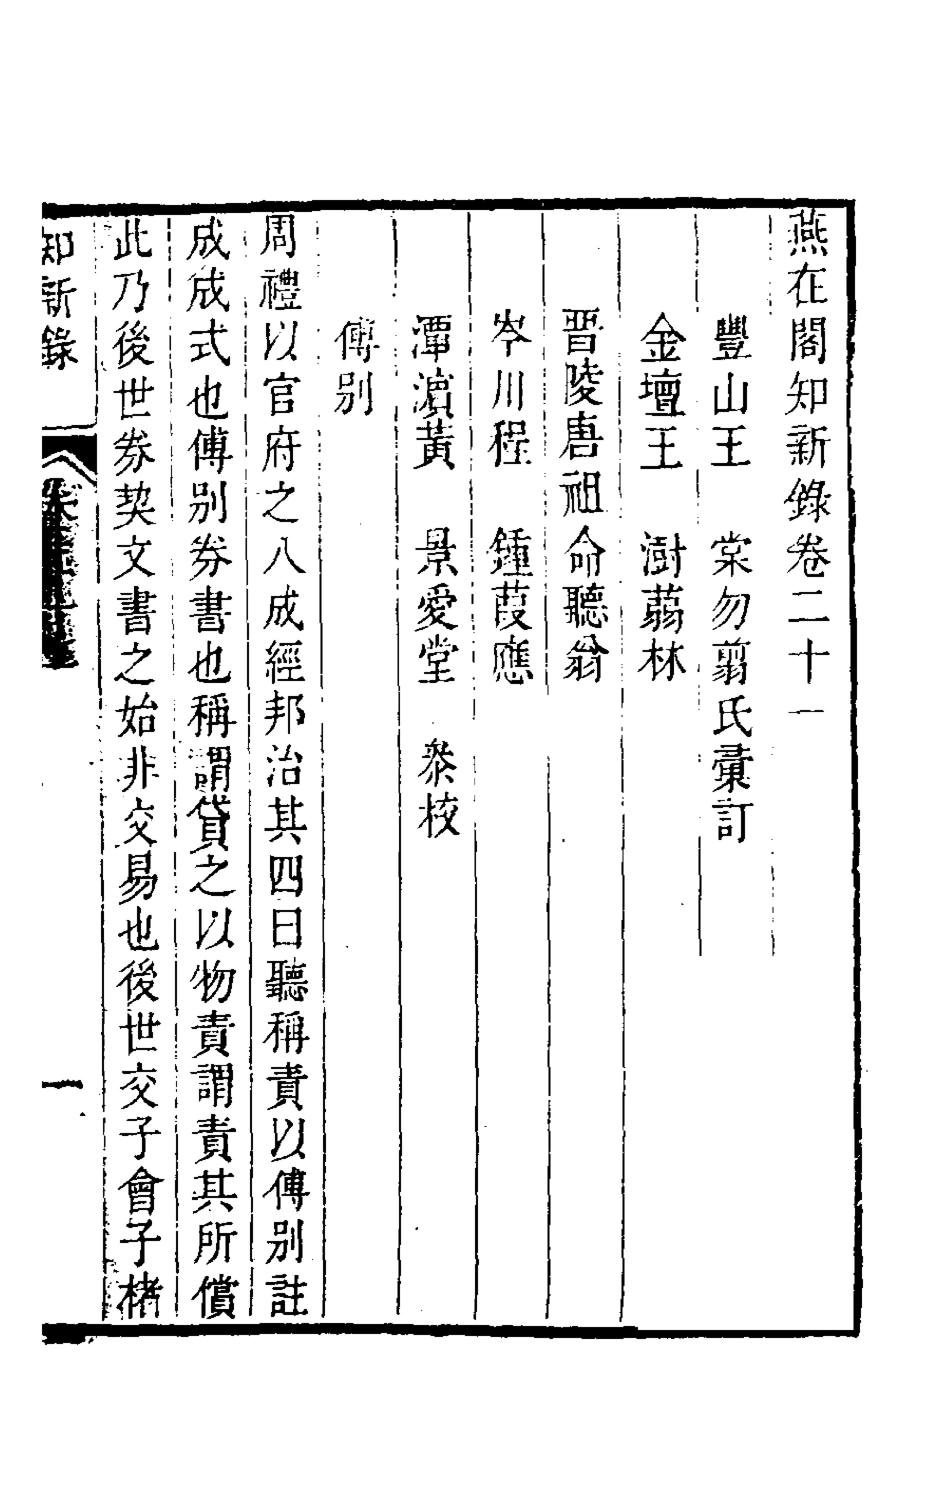 燕在閣知新錄卷二十一
豐山王　棠勿翦氏彙訂
金壇王　澍蒻林
晋陵唐祖命聽翁
岑川程　鍾葭應
潭濵黃　景愛堂　叅校
傅别
周禮以官府之八成經邦治其四曰聽稱責以傅别註
成成式也傅别券書也稱謂貸之以物責謂責其所償
此乃後世券契文書之始非交易也後世交子會子楮
知新錄
一